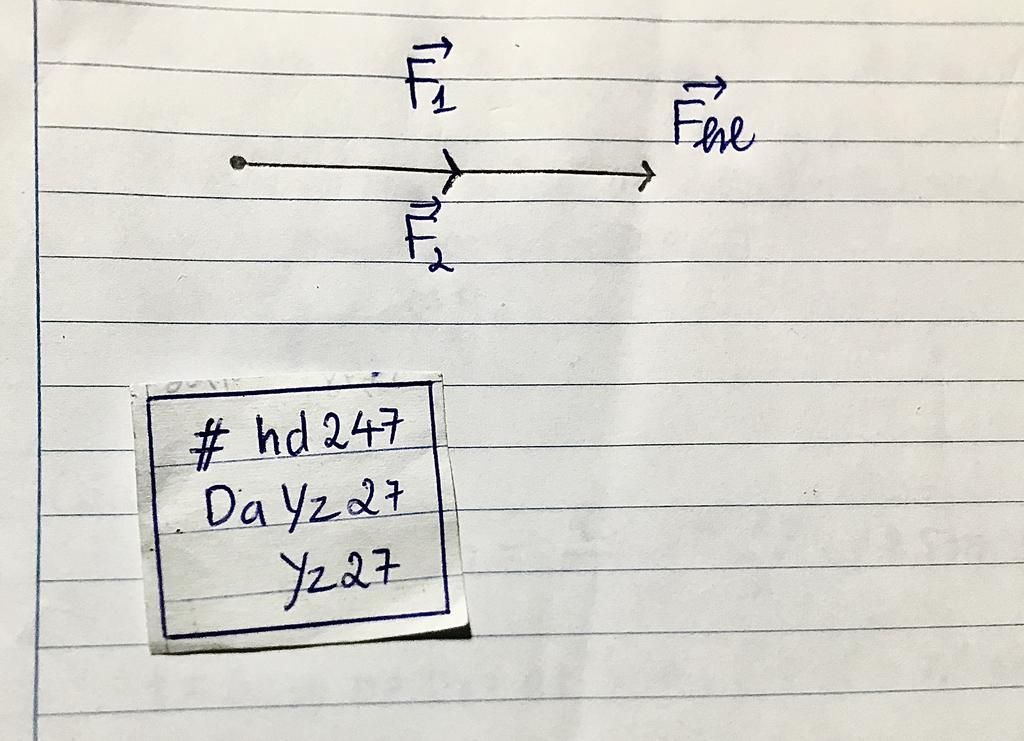 F⃗1
F⃗hl
F⃗2
# hd247
Da Yz27
Yz27